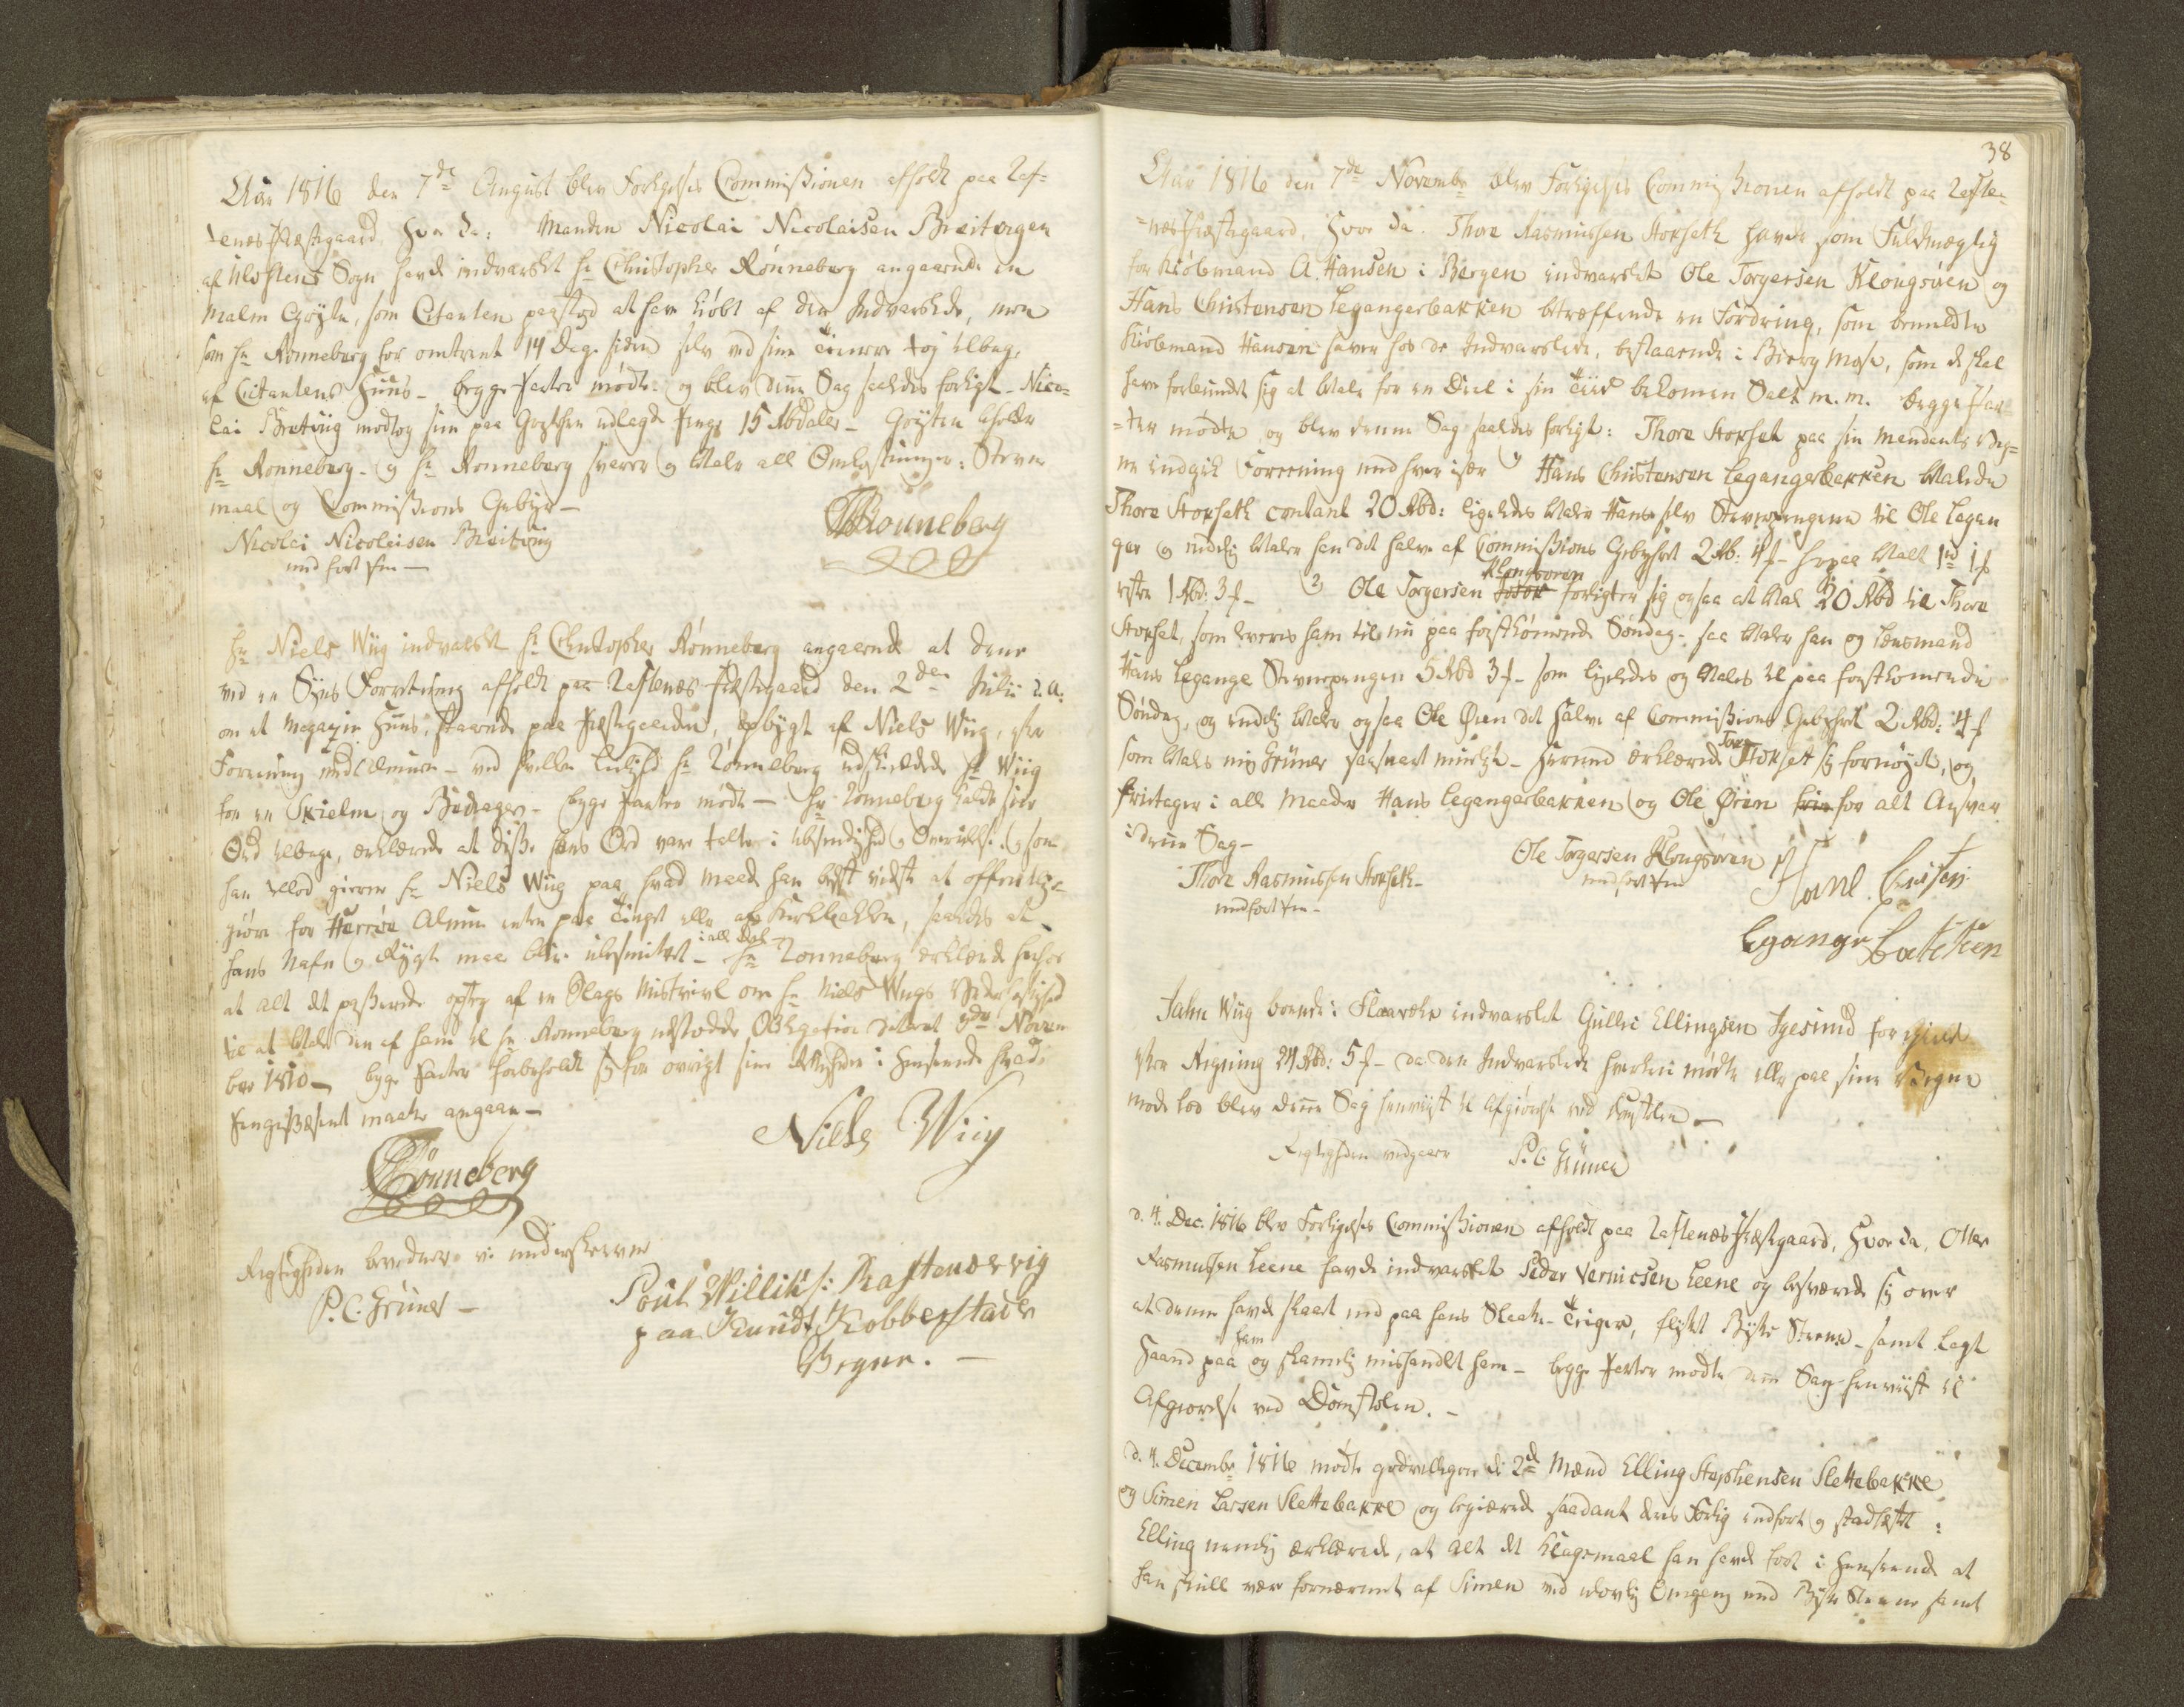 Aar 1816 den 7de August blev Forligelses Commissionen afholdt paa Raf-
tenæs Præstegaard hvor da: Manden Nicolai Nicolaisen Breitvigen
af Ulvstens Sogn havde indvarslet Hr Christopher Rønneberg angaaende en
Malm Gryte, som Citanten paastod at have kiøbt af den Indvarslede, men
som Hr Rønneberg for omtrent 14 Dage siden selv ved sine Tienere tog tilbage
af Citantens Huus - begge Parter mødte og blev denne Sag saaledes forligt - Nico-
lai Breitvig modtog sine paa Gryten udlagde Penge 15 Rbdaler - Gryten beholder
Hr Rønneberg - og Hr Rønneberg svarer og betaler all Omkostninger: Stevne
maal og Commissions Gebyr -
Nicolai Nicolaisen Breitvig
med ført Pen -
CRønneberg
Hr Niels Wiig indvarslet Hr Christopher Rønneberg angaaende at denne
ved en Syns Forretning afholdt paa Raftenæs Præstegaard den 2den Julii d. A.
om et Magazin Huus, staaende paa Præstegaarden, opbygt af Niels Wiig, efter
Forening med Almuen - ved Leilighed Hr Rønneberg udskieldede Hr Wiig
for en Skielm og Bedrager - begge Parter mødte - Hr Rønneberg kaldte sine
Ord tilbage, erklærede at disse hans Ord vare talte i Ubesindighed og Overiilelse og som
han tillod gierne Hr Niels Wiig paa hvad Maade han best vidste at offentlig-
giøre for Herrøe Almue enten paa Tinget eller af Kirkebakken, saaledes at
hans Nafn og Rygte maa blive ubesmittet i all Deel - Hr Rønneberg erklærede herhos
at alt det passerede opsteg af en Slags Mistvivl om Hr Niels Wiigs Vederheftighed
til at betale den af ham til Hr Rønneberg udstædde Obligation dateret 3de Novem
ber 1810 - begge Parter forbeholdt sig for øvrigt sine Rettigheder i Henseende hvad
Pengevæsenet maatte angaae -
CRønneberg
Niels Wiig
Rigtigheden bevidner vi underskrevne
P. C. Grüner -
Poul Willik s: Raftenæsvig
paa Knudt Kobberstads
Vegne. -
38
Aar 1816 den 7de Novembr blev Forligelses Commissionen afholdt paa Rafte-
-næs Præstegaard, hvor da: Thore Rasmussen Storseth havde som Fuldmægtig
for Kiøbmand A. Hansen i Bergen indvarslet Ole Torgersen Klongsøren og
Hans Christensen Legangerbakken betræffende en Fordring, som bemeldte
Kiøbmand Hansen haver hos de Indvarslede, bestaaende i Biergmose, som de skal
have forbundet sig at betale for en Deel i sin Tiid bekomen Salt m. m. begge Par-
-ter mødte og blev denne Sag saaledes forligt: Thore Storset paa sin Mandants Veg-
ne indgik Foreening med hver især 1) Hans Christensen Legangerbakken betalede
Thore Storseth contant 20 Rbd: ligeledes betaler Hans selv Stevnepengene til Ole Legan
ger og endelig betaler han det halve af Commissions Gebyhret 2 Rb: 4 s - herpaa betalt 1d 1s
rester 1 Rbd: 3 s - 2) Ole Torgersen Klongsøren forligter sig ogsaa at betale 20 Rbd til Thore
Storset, som leveres ham til nu paa førstkomende Søndag - saa betaler han og Lensmand
Hans Legange Stevnepengen 5 Rbd 3 s - som ligeledes og betales til paa førstkomende
Søndag, og endelig betaler ogsaa Ole Øren det halve af Commissions Gebyhret 2 Rbd: 4 s
som betales mig Grüner saasnart mueligt - hermed erklærede Tore Storset sig fornøyet, og
fritager i alle Maader Hans Legangerbakken og Ole Øren for alt Ansvar
i denne Sag -
Thore Rasmussen Storseth -
med ført Pen -
Ole Torgersen Klongsøren
med ført Pen
Hans Cristen
Legangr Bakken
Jahn Wiig boende i Flaavær indvarslet Gullic Ellingsen Igesund for Gield
efter Regning 24 Rbd: 5 s - da den Indvarslede hverken mødte eller paa sine Vegne
møde lod blev denne Sag henviist til Afgiørelse ved Domstolen -
Rigtigheden vedgaaer P. C. Grüner
d. 4. Dec. 1816 blev Forligelses Commissionen afholdt paa Raftenæs Præstegaard, hvor da, Otter
Rasmussen Leene havde indvarslet Peder Vernicsen Leene og besværede sig over
at denne havde slaaet ind paa hans Slaatte-Teiger, flyttet Bytte Steene - samt lagt
Haand paa ham og skamelig mishandlet ham - begge Parter mødte denne Sag henviist til
Afgiørelse ved Domstolen. -
d. 4. Decembr 1816 mødte godvilligen de 2de Mænd Elling Stephensen Slettebakke
og Simen Larsen Slettebakke og begiærede saadant deres Forlig indført og stadfæstet:
Elling nemlig erklærede, at alt det Klagemaal han havde ført i Henseende at
han skulle være fornærmet af Simen ved ulovlig Omgang med Bytte Steene samt